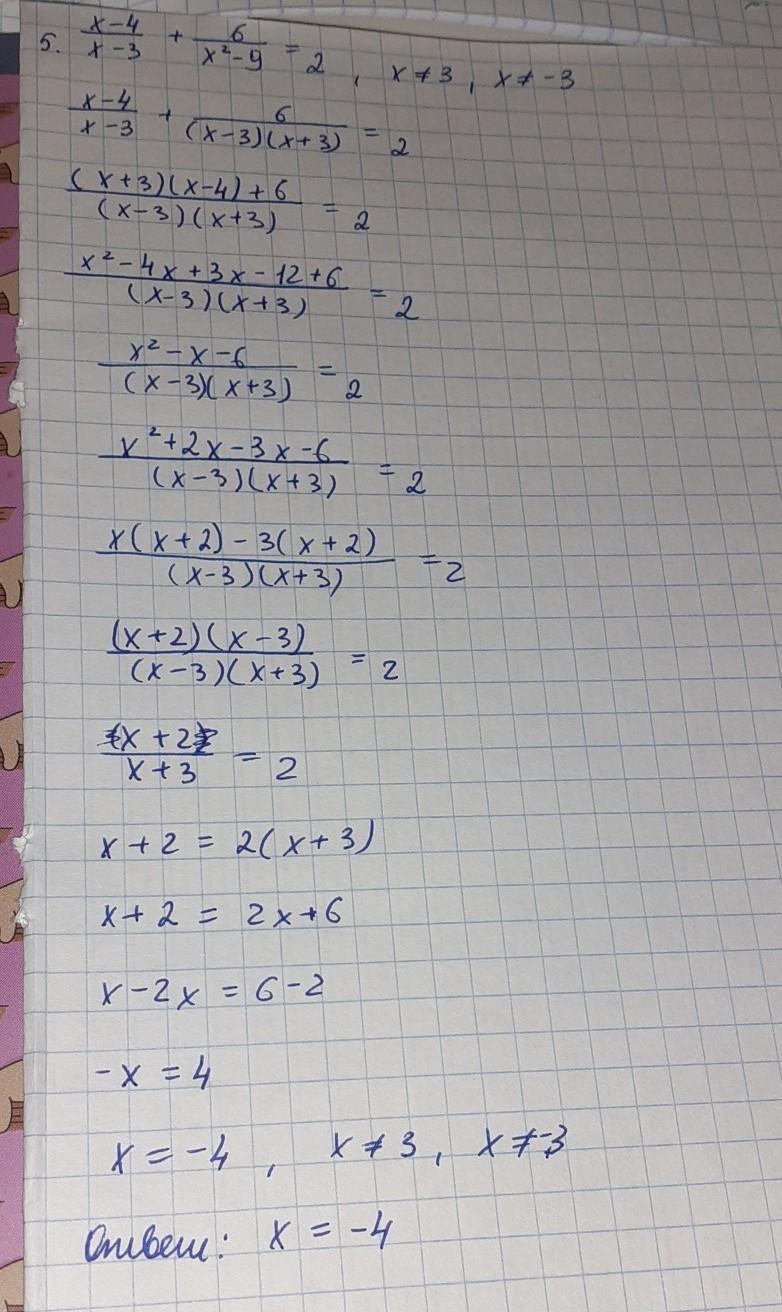 5. (x-4)/(x-3) + 6/(x²-9) = 2, x≠3, x≠-3
(x-4)/(x-3) + 6/((x-3)(x+3)) = 2
((x+3)(x-4)+6)/((x-3)(x+3)) = 2
(x²-4x+3x-12+6)/((x-3)(x+3)) = 2
(x²-x-6)/((x-3)(x+3)) = 2
(x²+2x-3x-6)/((x-3)(x+3)) = 2
(x(x+2)-3(x+2))/((x-3)(x+3)) = 2
((x+2)(x-3))/((x-3)(x+3)) = 2
(x+2)/(x+3) = 2
x+2 = 2(x+3)
x+2 = 2x+6
x-2x = 6-2
-x = 4
x = -4, x≠3, x≠-3
Ответ: x = -4